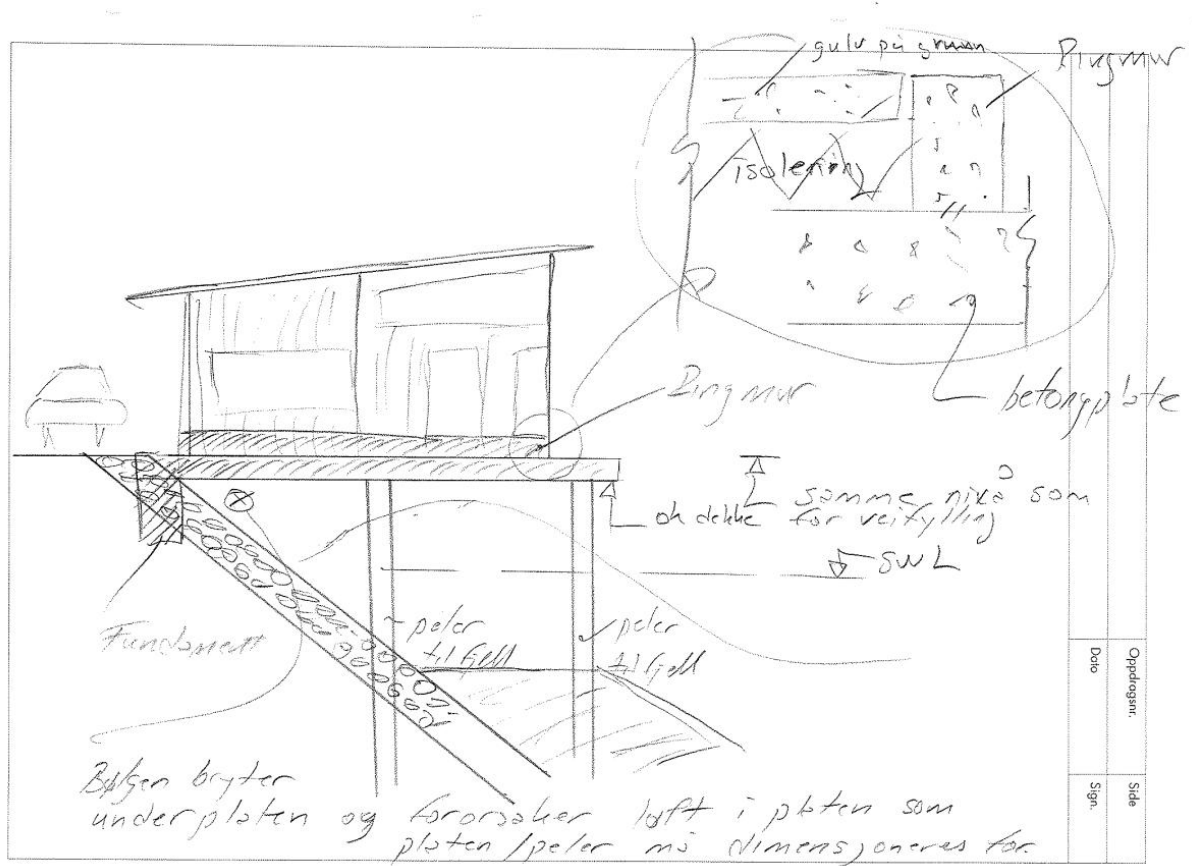 gulv på grunn
Ringmur
isolering
betongplate
Ringmur
samme nivå som
ok dekke for veifylling
SWL
peler
til fjell
peler
til fjell
Fundament
Bølgen bryter
under platen og forårsaker løft i platen som
platen/peler må dimensjoneres for.
Oppdragsnr.
Side
Dato
Sign.